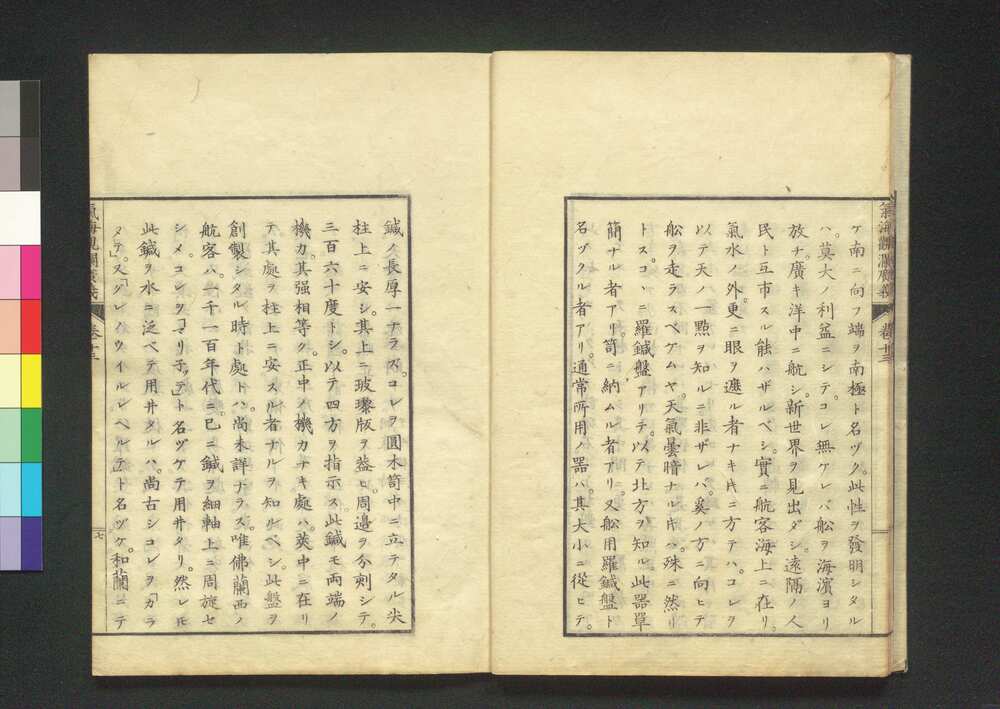 氣海觀瀾廣義
卷十三
ケ南ニ向フ端ヲ南極ト名ヅク。此性ヲ發明シタル
ハ。莫大ノ利益ニシテ。コレ無ケレバ船ヲ海濱ヨリ
放チ。廣キ洋中ニ航シ。新世界ヲ見出ダシ。遠隔ノ人
民ト互市スル能ハザルベシ。實ニ航客海上ニ在リ。
氣水ノ外。更ニ眼ヲ遮ル者ナキ𪜈ニ方テハ。コレヲ
以テ天ノ一點ヲ知ルニ非ザレバ。奚ノ方ニ向ヒテ
船ヲ走ラスベケムヤ。天氣曇暗ナル𪜈ハ。殊ニ然リ
トス。コヽニ羅鍼盤アリテ。以テ北方ヲ知ル。此器單
簡ナル者アリ。笥ニ納ムル者アリ。又船用羅鍼盤ト
名ヅクル者アリ。通常所用ノ器ハ。其大小ニ從ヒテ。
鍼ノ長厚一ナラズ。コレヲ圓木笥中ニ立テタル尖
柱上ニ安シ。其上ニ玻瓈版ヲ蓋ヒ。周邊ヲ分劑シテ。
三百六十度トシ。以テ四方ヲ指示ス。此鍼モ兩端ノ
機力。其强相等ク。正中ノ機力ナキ處ハ。莢中ニ在リ
テ其處ヲ柱上ニ安スル者ナルヲ知ルベシ。此盤ヲ
創製シタル時ト處トハ。尚未詳ナラズ。唯佛蘭西ノ
航客ハ。一千一百年代ニ。已ニ鍼ヲ細軸上ニ周旋セ
シメ。コレヲ「マリ子ッテ」ト名ヅケテ用井タリ。然レ𪜈
此鍼ヲ水ニ泛ベテ用井タルハ。尚古シ。コレヲ「カラ
タテ」。又「グレイウイルレベルテ」ト名ヅケ。和蘭ニテ
氣海觀瀾廣義
卷十三
七